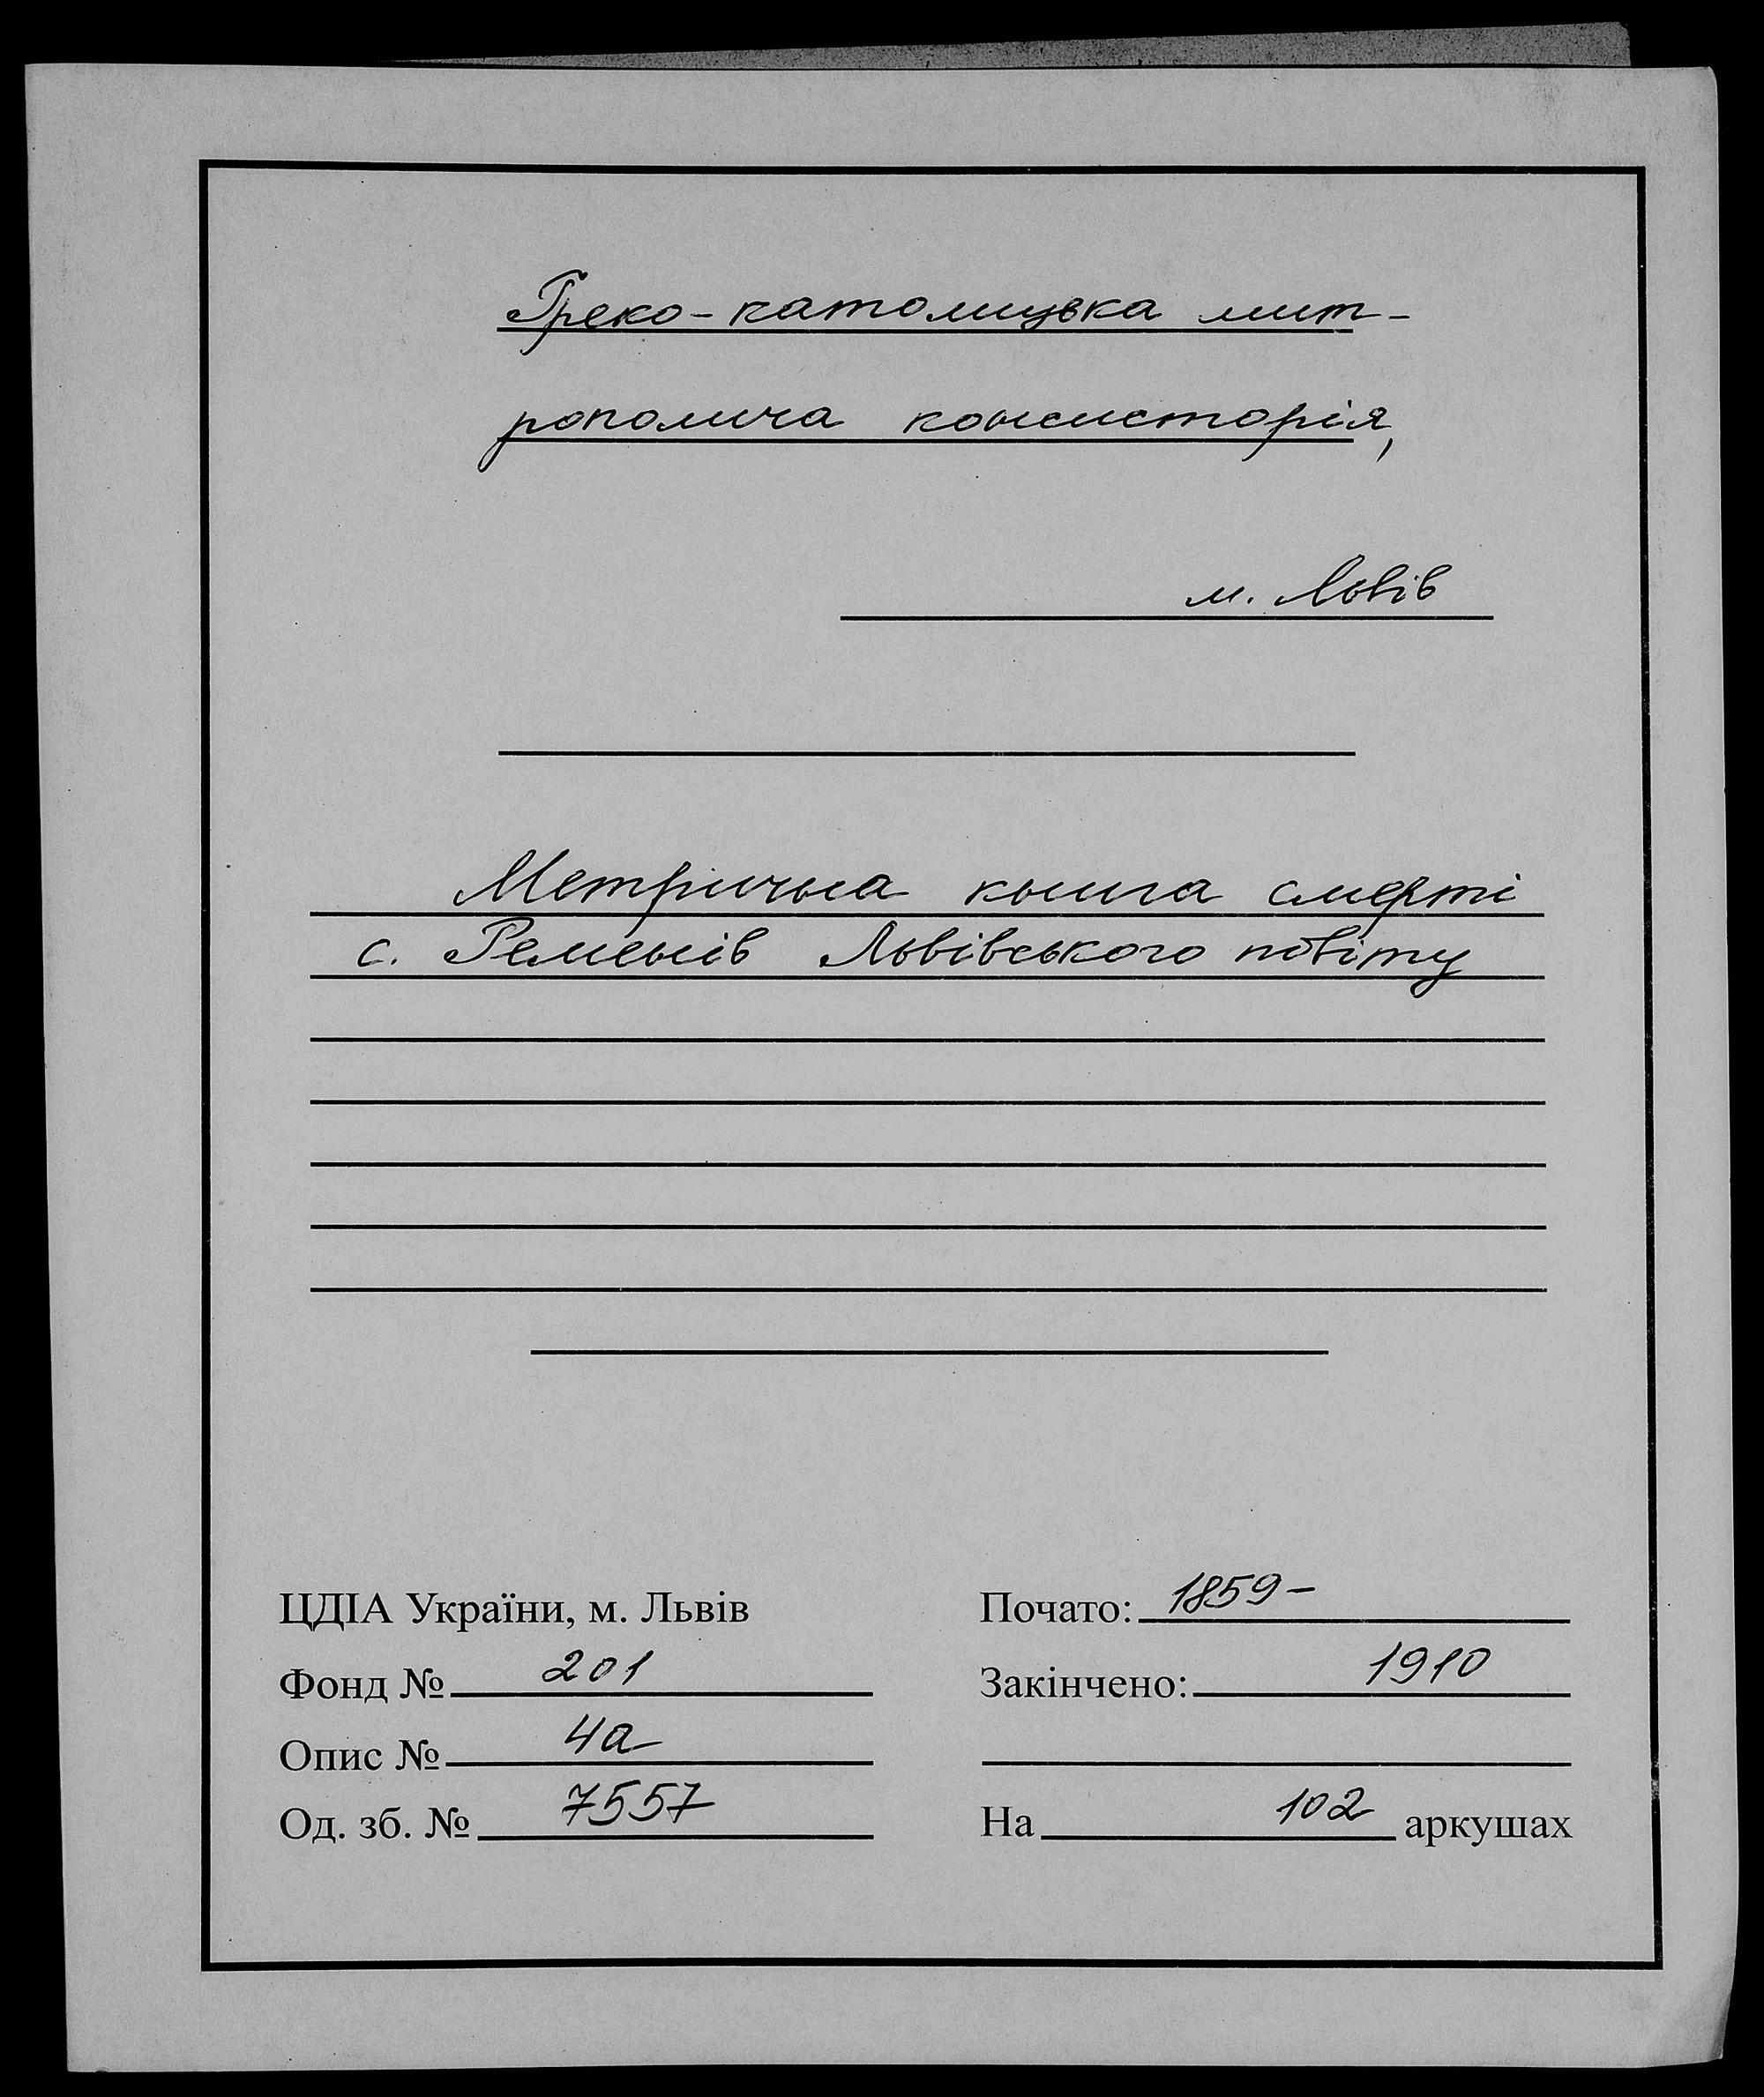 Греко-католицька мит-
рополича консисторія,
м. Львів
Метрична книга смерті
с. Ременів Львівського повіту
ЦДІА України, м. Львів
Фонд № 201
Опис № 4а
Од. зб. № 7557
Почато: 1859-
Закінчено: 1910
На 102 аркушах